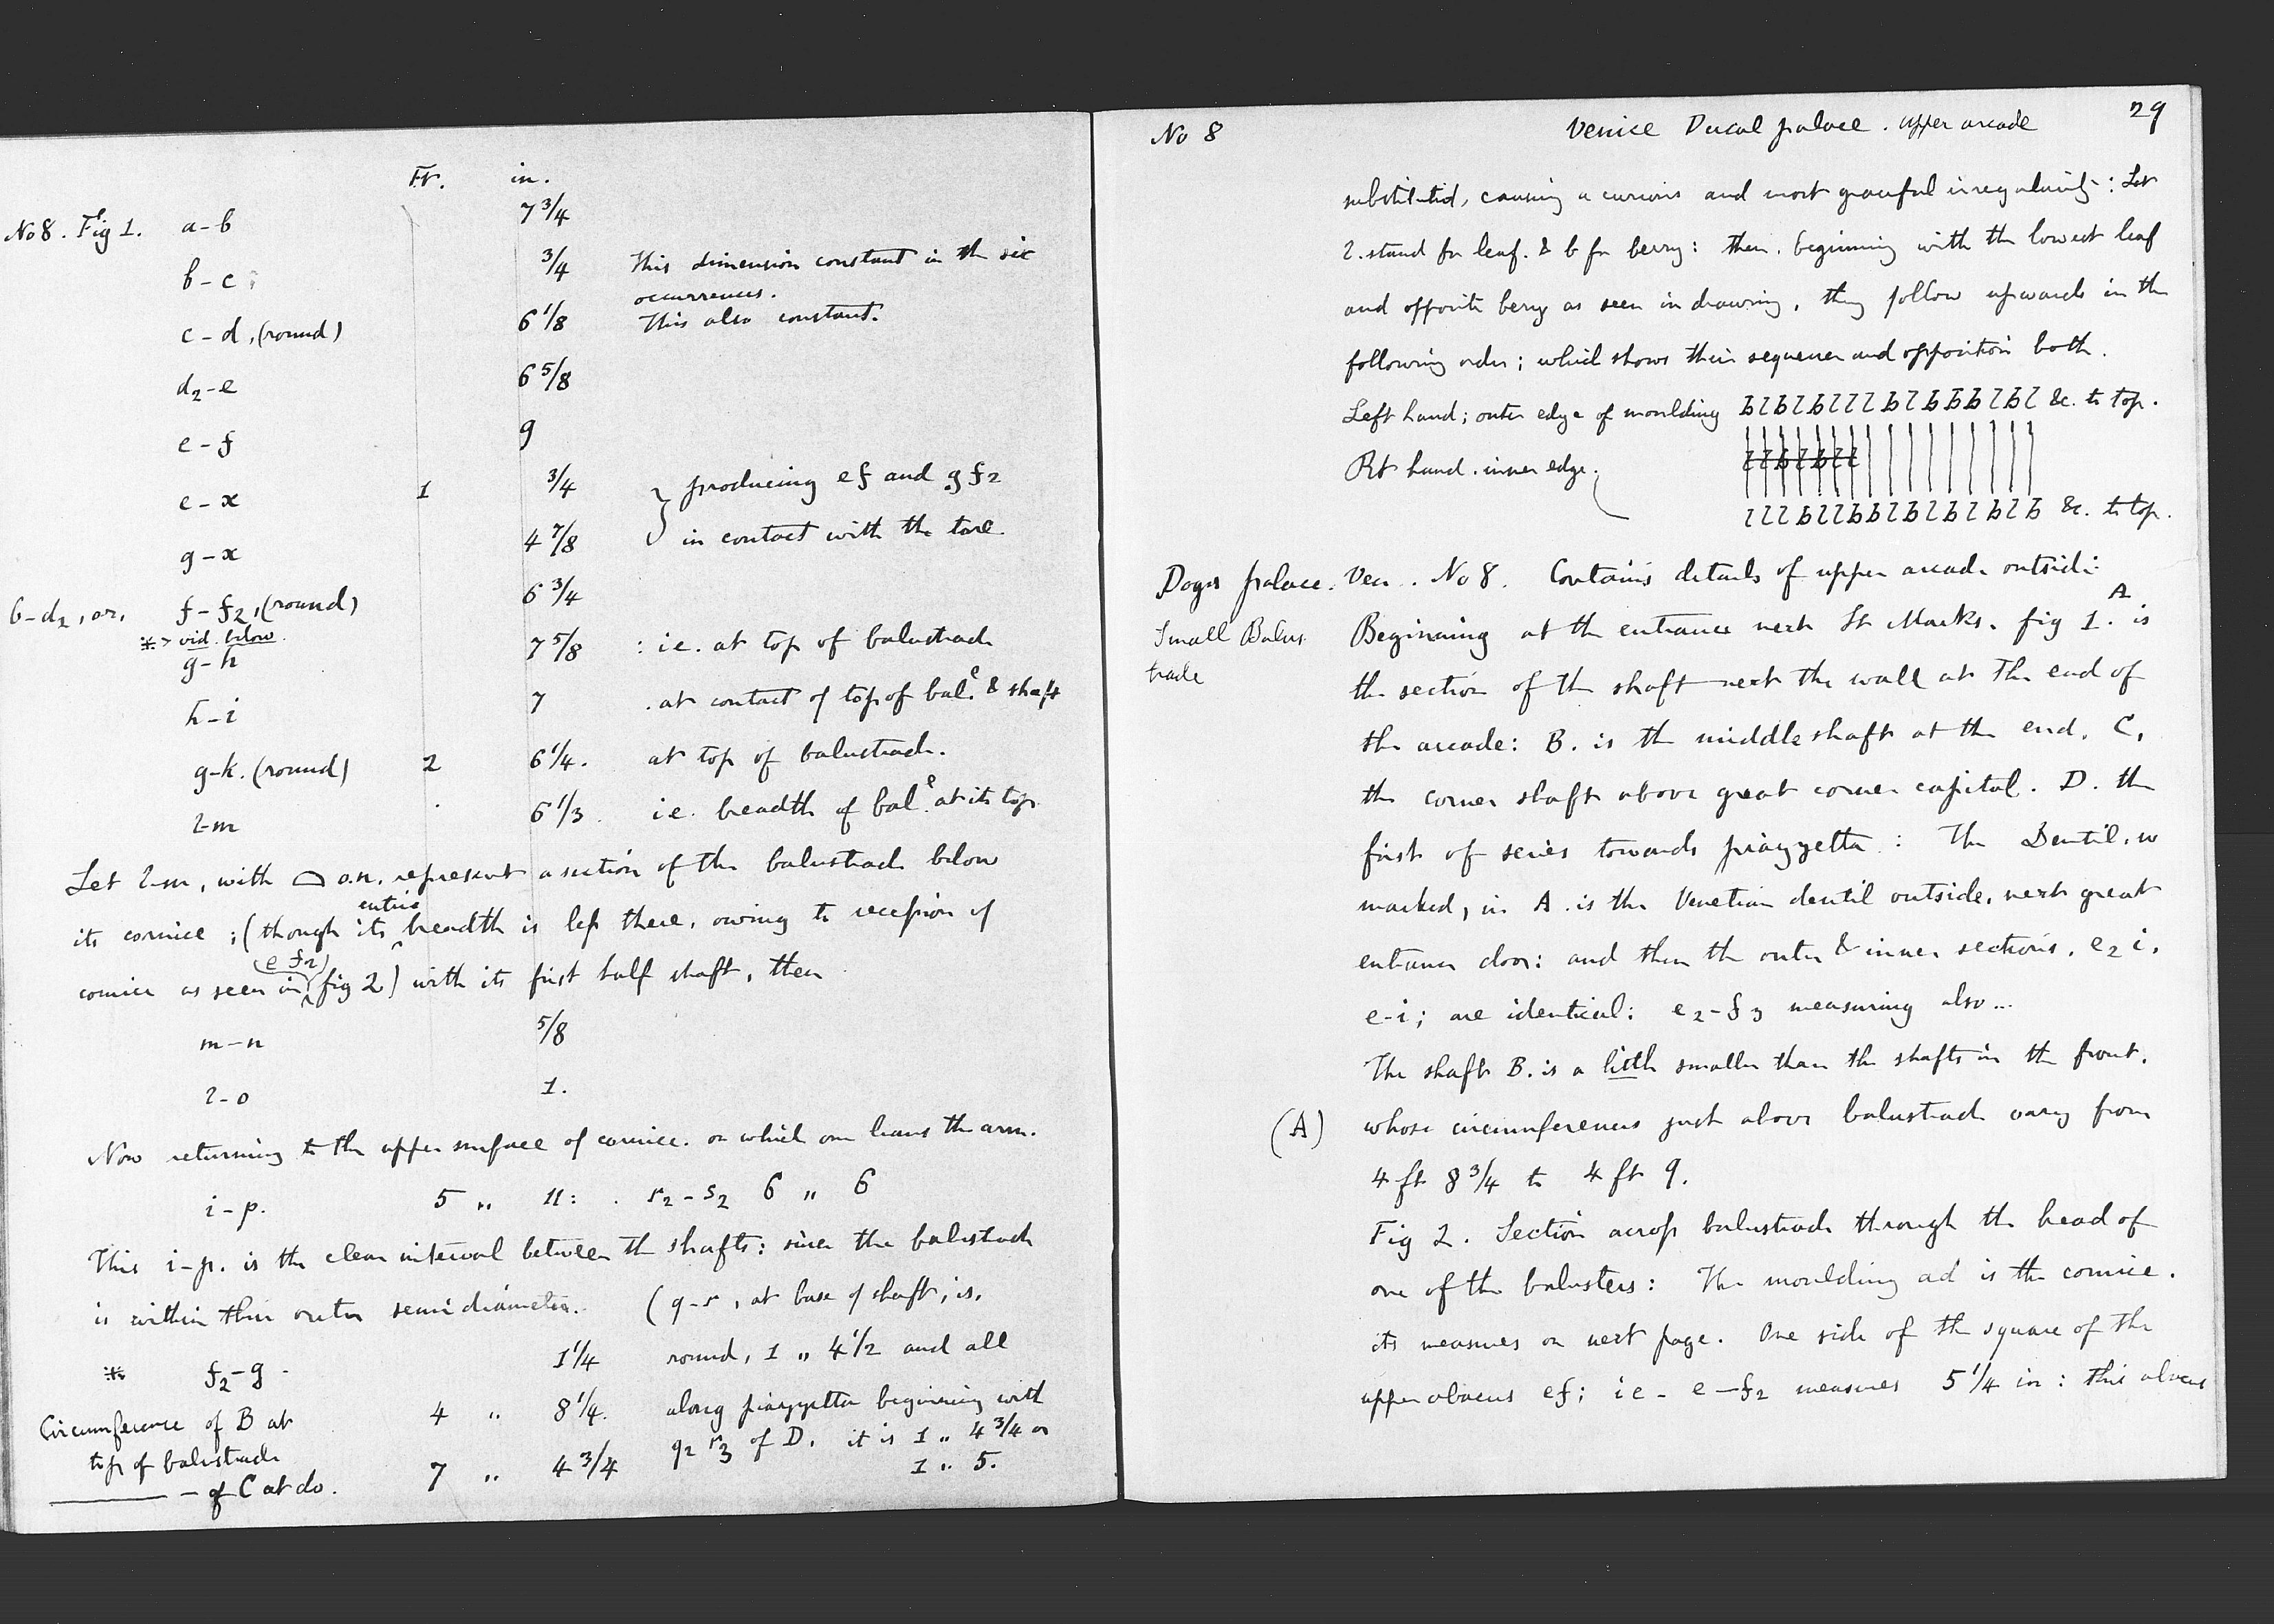 Ft. in.
No 8. Fig 1. a-b 7 3/4
b-c 3/4 This dimension constant in the six
occurrences.
c-d, (round) 6 1/8 This also constant.
d2-e 6 5/8
e-f 9
e-x 1 3/4 } producing ef and gf2
g-x 4 7/8 in contact with the
b-d2, or, f-f2, (round) 6 3/4
※ > vid. below.
g-h 7 5/8 : i.e. at top of balustrade
h-i 7 . at contact of top of bal.e & shaft
g-k. (round) 2 6 1/4. at top of balustrade.
l-m 6 1/3. i.e. breadth of bal.e at its top
Let l-m, with o.n. represent a section of the balustrade below
its cornice ; (though its entire breadth is less there, owing to recession of
cornice as seen in (e f2) fig 2) with its first half shaft, then
m-n 5/8
l-o 1.
Now returning to the upper surface of cornice. on which one leans the arm.
i-p. 5 ,, 11: . r2-s2 6 ,, 6
This i-p. is the clear interval between the shafts: since the balustrade
is within their outer semidiameter. (q-r, at base of shaft, is,
※ f2-g - 1 1/4 round, 1 ,, 4 1/2 and all
Circumference of B at 4 ,, 8 1/4. along piazzetta beginning with
top of balustrade q2 r3 of D. it is 1 ,, 4 3/4 or
—— - of C at do. 7 ,, 4 3/4 1 ,, 5.
No 8 Venice Ducal palace. upper arcade 29
substituted, causing a curious and most graceful irregularity: Let
l. stand for leaf. & b for berry: then, beginning with the lowest leaf
and opposite berry as seen in drawing, they follow upwards in the
following order; which shows their sequence and opposition both.
Left hand; outer edge of moulding b l b l b l l l b l b b b l b l &c. to top.
l l b l b l l
Rt hand. inner edge.
l l l b l l b b l b l b l b l b &c. to top.
Doges palace. Ven. No 8. Contains details of upper arcade outside:
Small Balus
trade
Beginning at the entrance next St Marks. fig 1. A is
the section of the shaft next the wall at the end of
the arcade: B. is the middle shaft at the end. C,
the corner shaft above great corner capital. D. the
first of series towards piazzetta: The Dentil, w
marked, in A. is the Venetian dentil outside, next great
entrance door: and then the outer & inner sections, e2 i,
e-i; are identical: e2-f3 measuring also...
The shaft B. is a little smaller than the shafts in the front.
(A) whose circumferences just above balustrade vary from
4 ft 8 3/4 to 4 ft 9.
Fig 2. Section across balustrade through the head of
one of the balusters: The moulding ad is the cornice.
its measures on next page. One side of the square of the
upper abacus ef; ie - e-f2 measures 5 1/4 in: this abacus